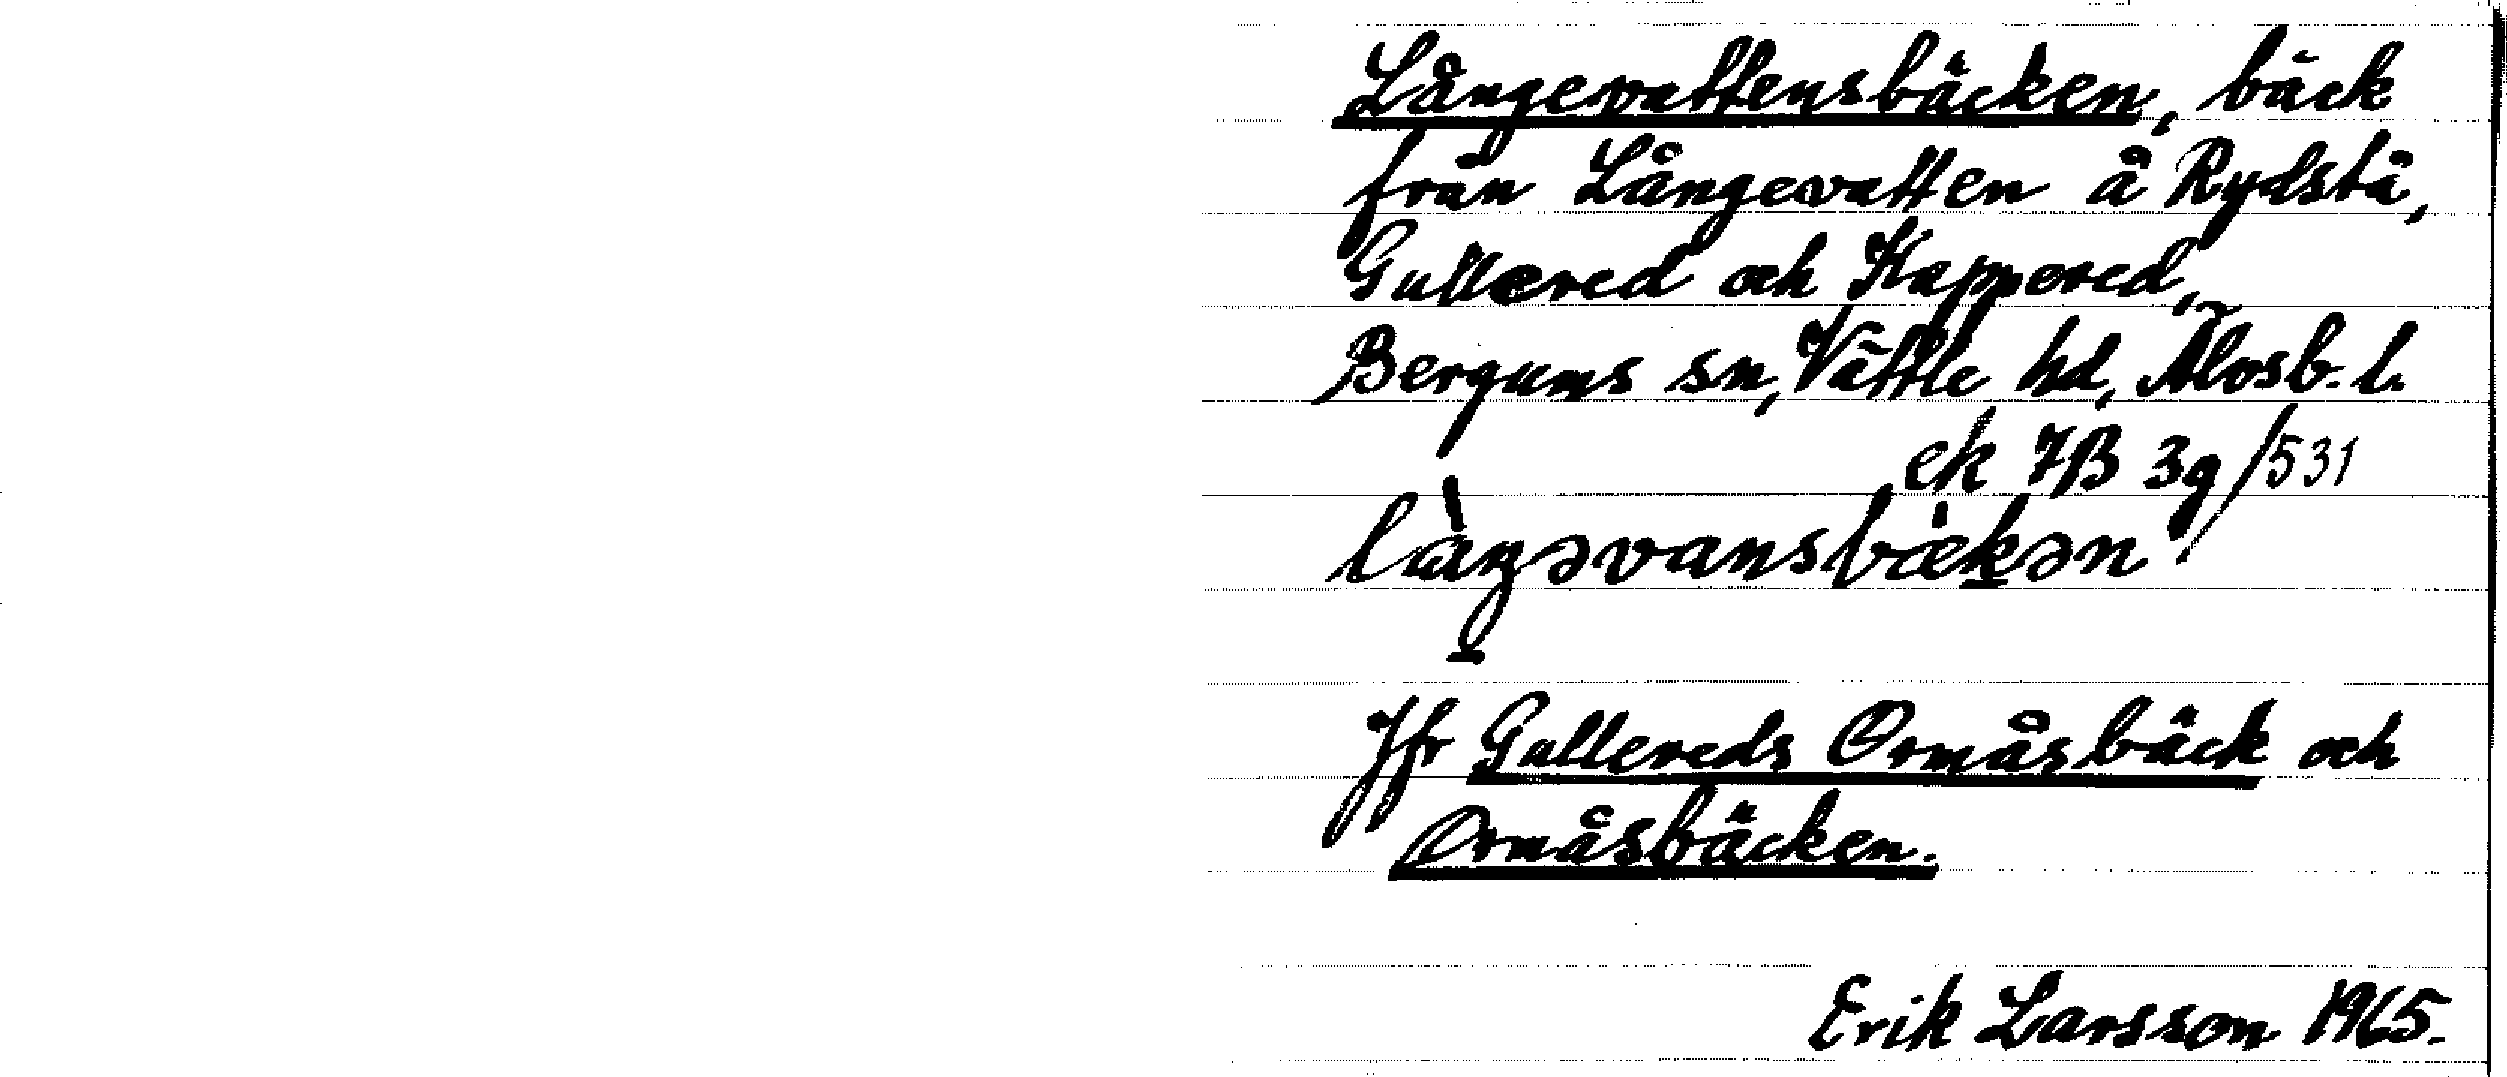 Långevattensbäcken, bäck
från Långevatten å Rydstå,
Gullered och Kappered,
Bergums sn, Vättle hd, Älvsb. l.
ek 7B 3g/531
làŋəvansbæ̀kən
Jfr Gullereds Ormåsbäck och
Ormåsbäcken.
Erik Larsson 1965.